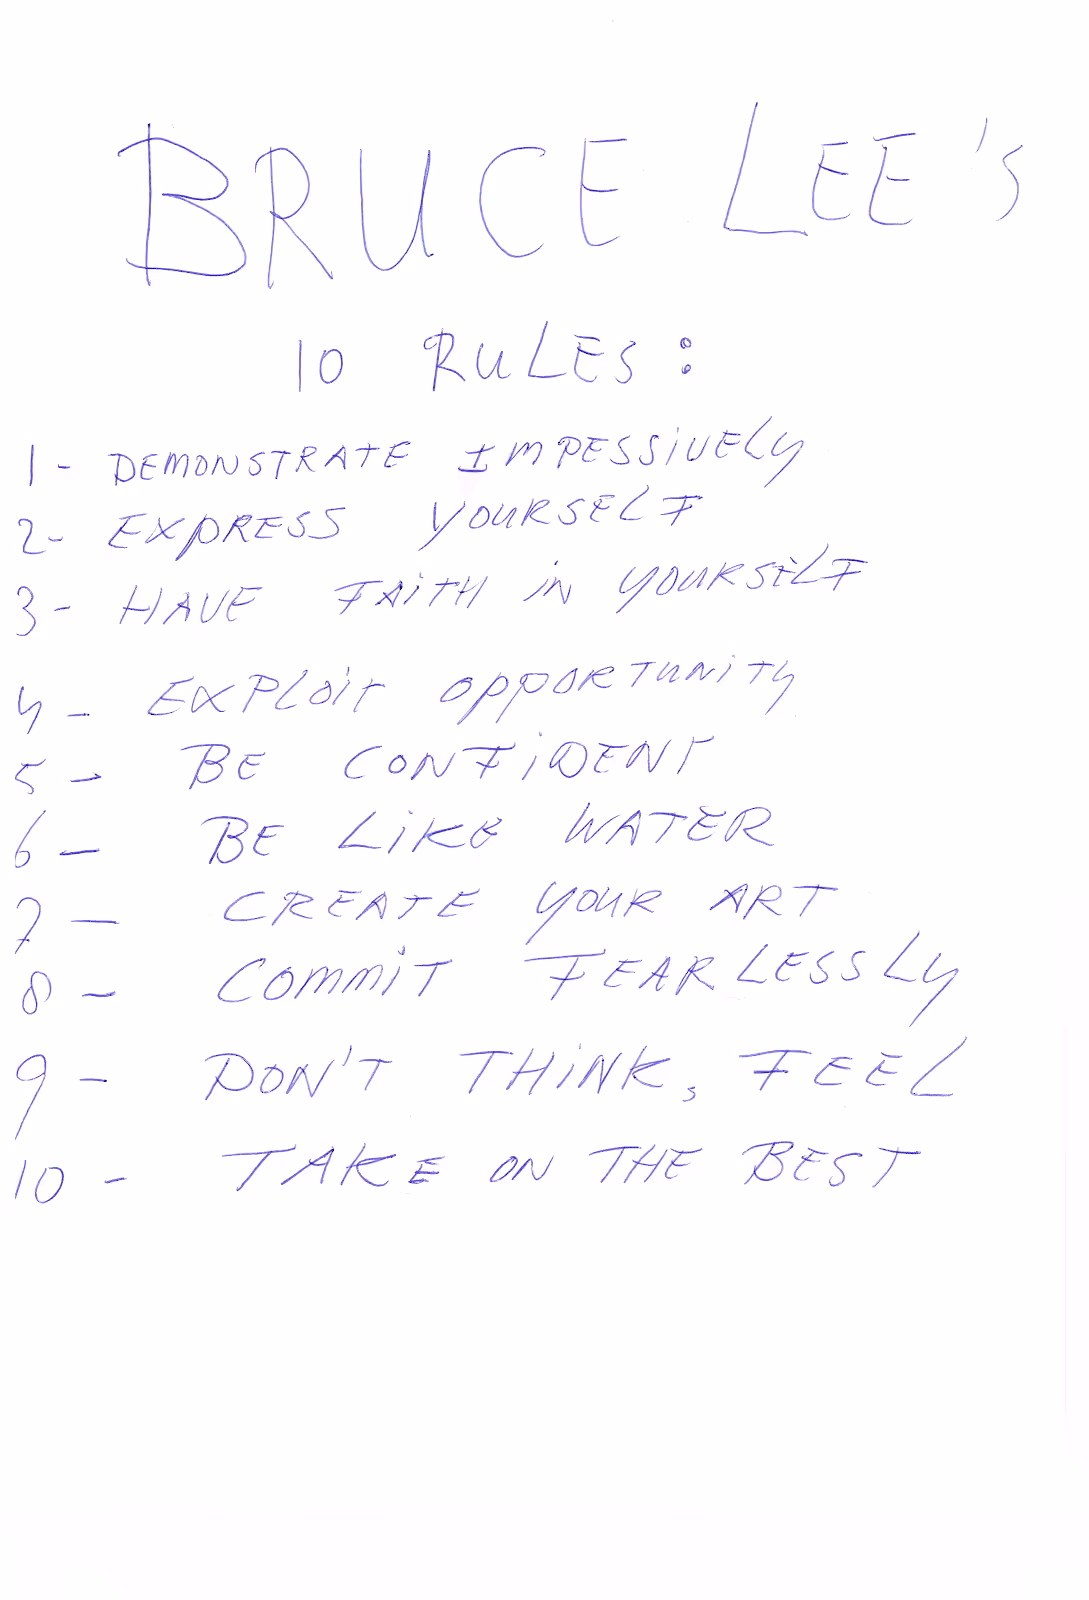 BRUCE LEE'S
10 RULES:
1- DEMONSTRATE IMPESSiVELY
2- EXPRESS YOURSELF
3- HAVE FAiTH iN YOURSELF
4- EXPLOiT OPPORTUNiTY
5- BE CONFiDENT
6- BE LiKE WATER
7- CREATE YOUR ART
8- COMMiT FEARLESSLY
9- DON'T THiNK, FEEL
10- TAKE ON THE BEST